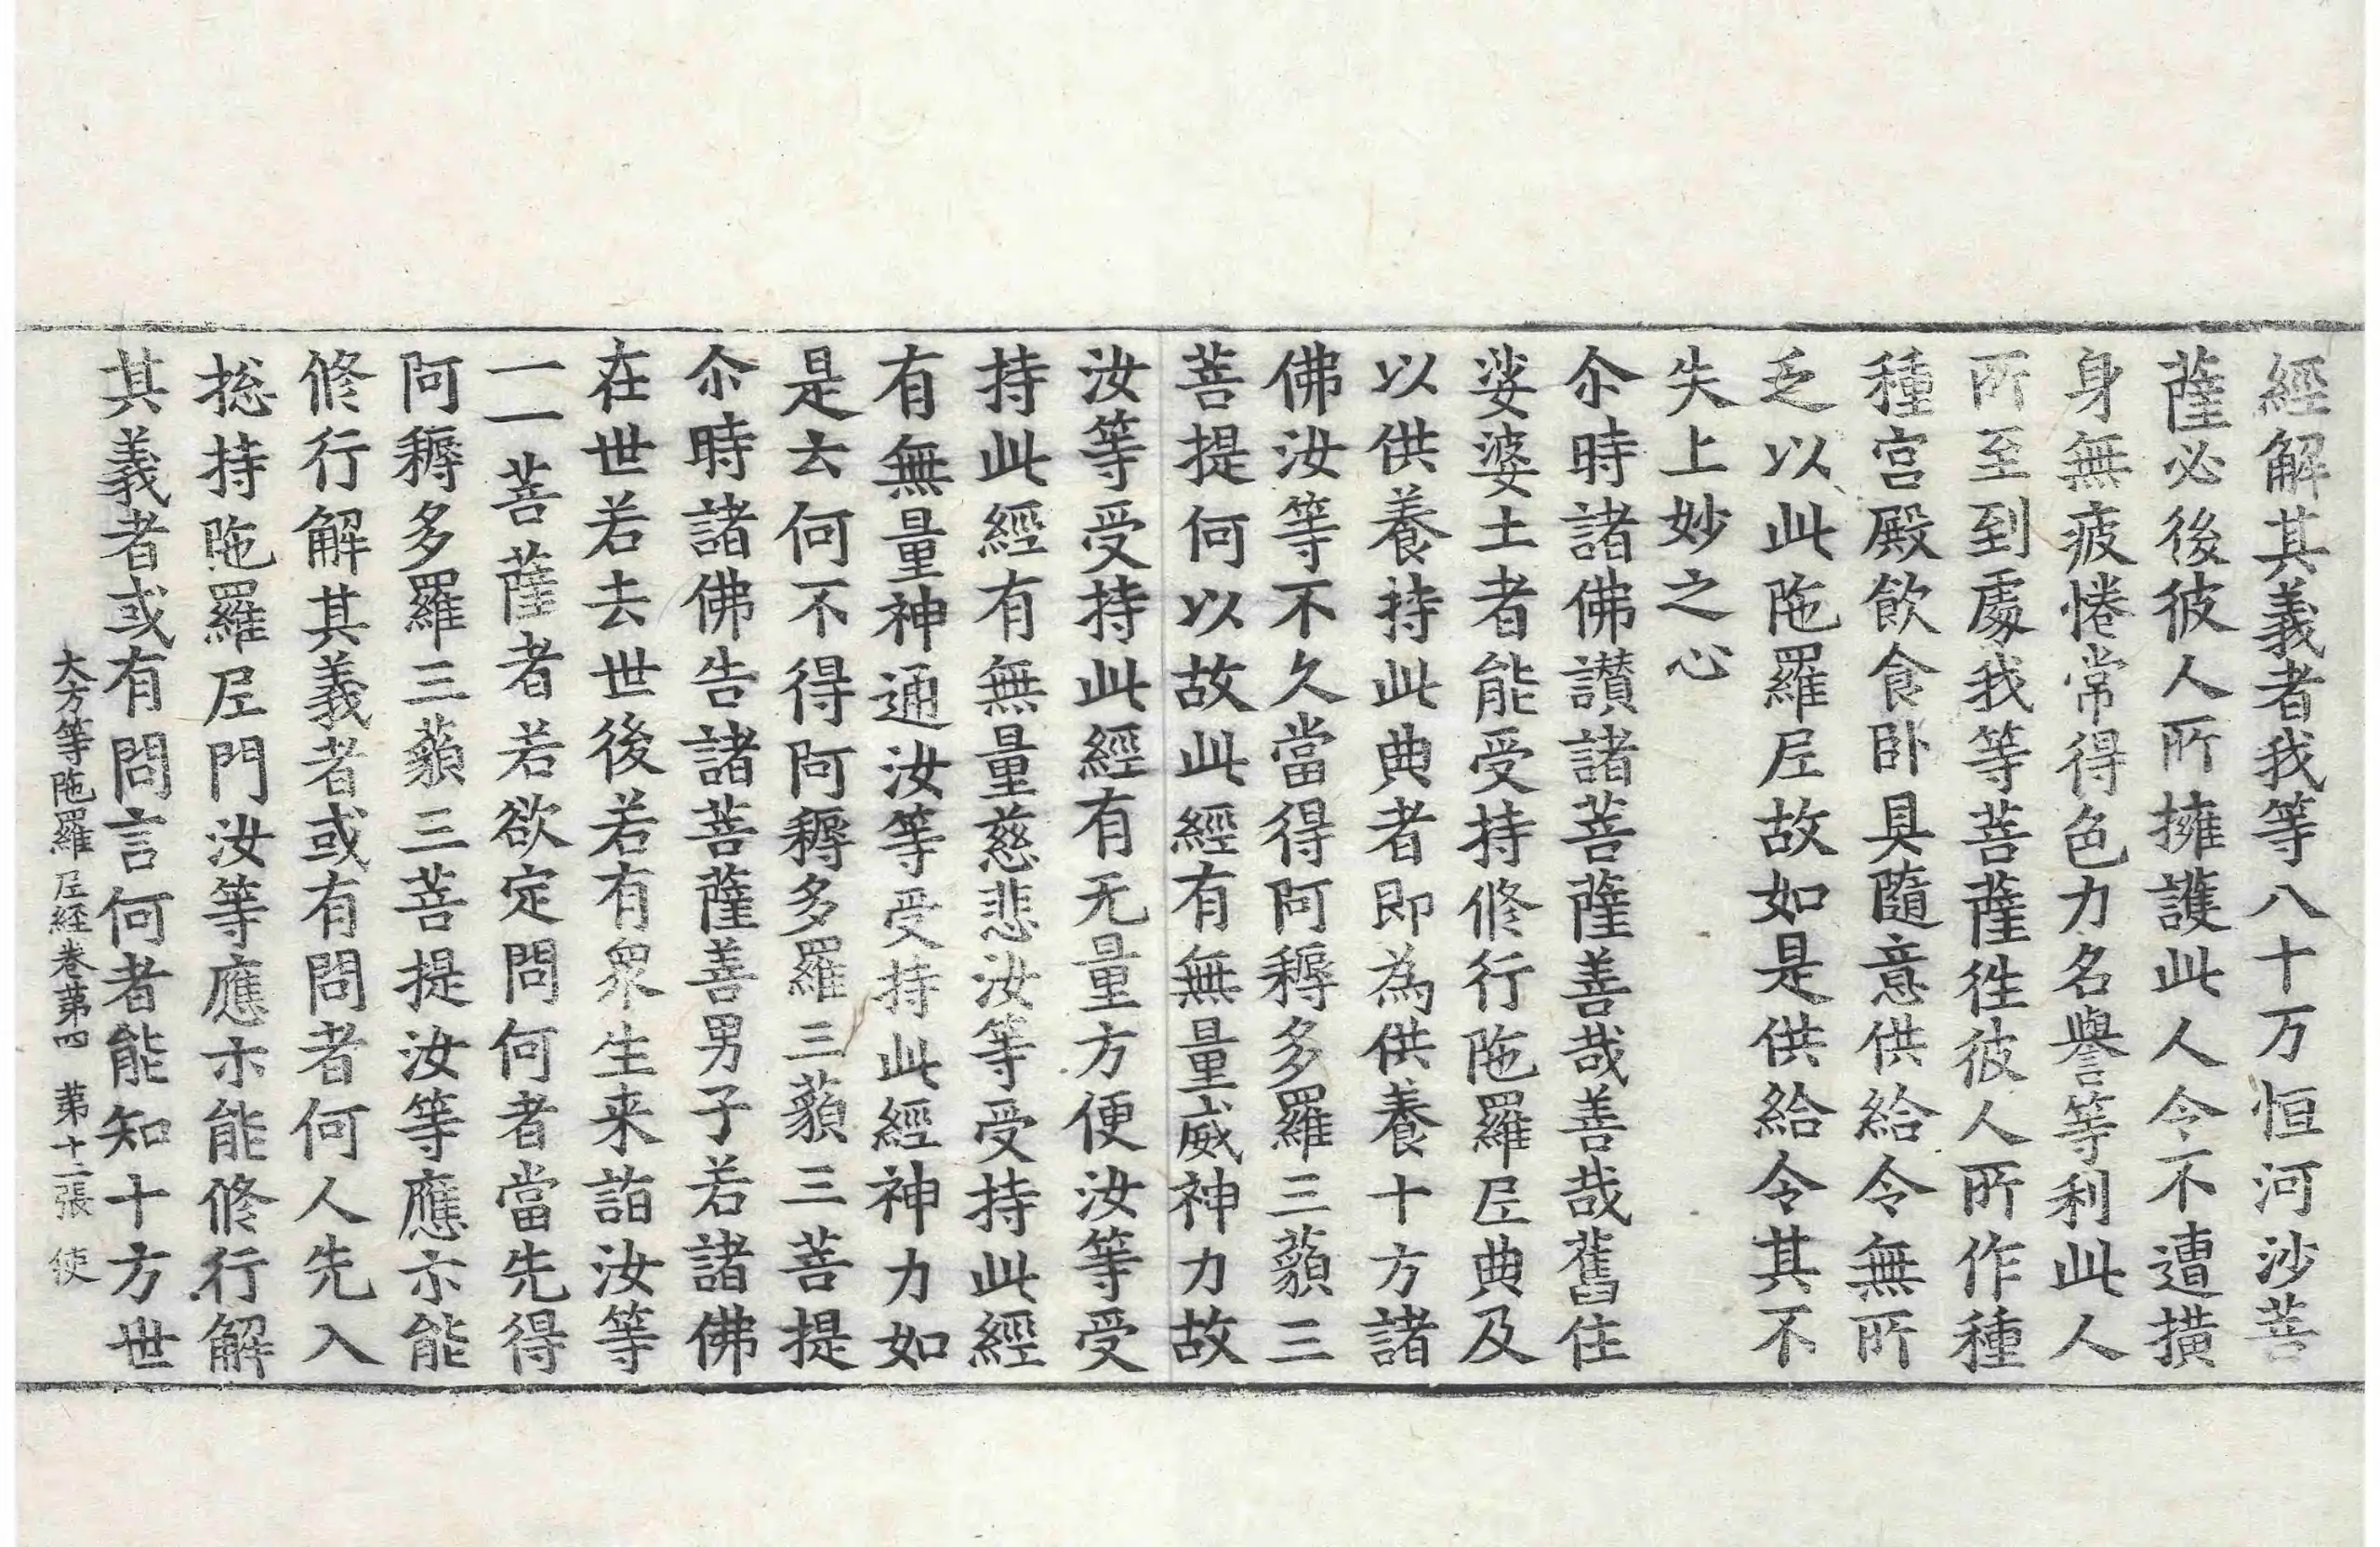 經解其義者我等八十万恒河沙菩
薩必後彼人所擁護此人令不遭撗
身無疲惓常得色力名譽等利此人
所至到處我等菩薩徃彼人所作種
種宮殿飲食卧具隨意供給令無所
乏以此陁羅尼故如是供給令其不
失上妙之心
尒時諸佛讃諸菩薩善哉善哉舊住
娑婆土者能受持修行陁羅尼典及
以供養持此典者即為供養十方諸
佛汝等不久當得阿耨多羅三藐三
菩提何以故此經有無量威神力故
汝等受持此經有无量方便汝等受
持此經有無量慈悲汝等受持此經
有無量神通汝等受持此經神力如
是去何不得阿耨多羅三藐三菩提
尒時諸佛告諸菩薩善男子若諸佛
在世若去世後若有衆生来詣汝等
一一菩薩者若欲定問何者當先得
阿耨多羅三藐三菩提汝等應亦能
修行解其義者或有問者何人先入
捴持陁羅尼門汝等應亦能修行解
其義者或有問言何者能知十方世
大方等陁羅尼経卷苐四 苐十二張 使